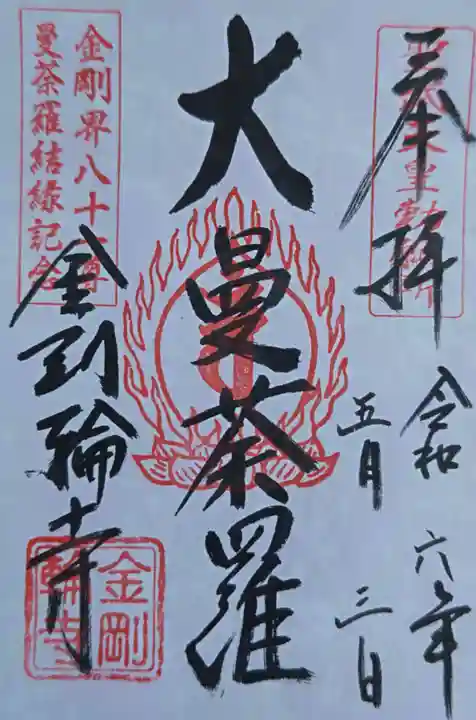 奉拝
聖武天皇勅願所
令和六年
五月三日
大曼荼羅
金剛界八十一尊
曼荼羅結縁記念
金剛輪寺
金剛
輪寺